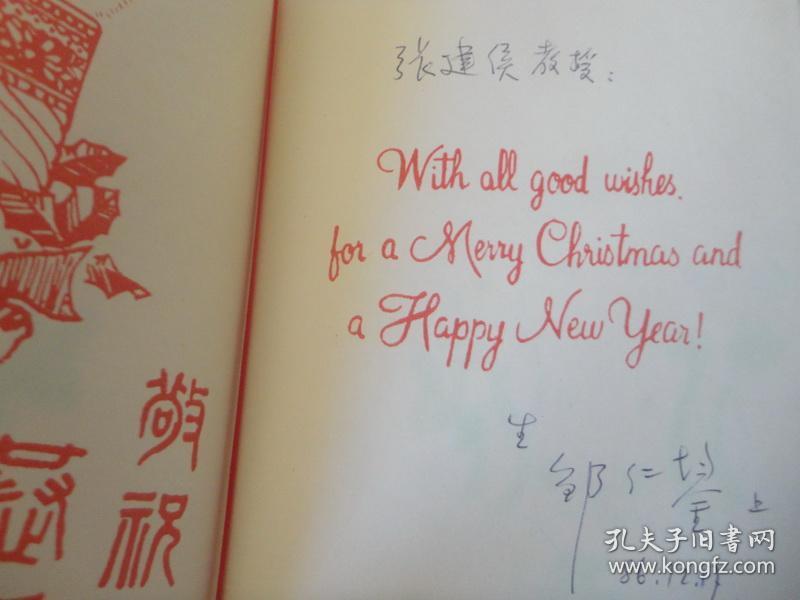 张建侯教授：
With all good wishes.
for a Merry Christmas and
a Happy New Year!
生
邹仁鋆 上
86.12.17
敬祝
孔夫子旧书网
www.kongfz.com